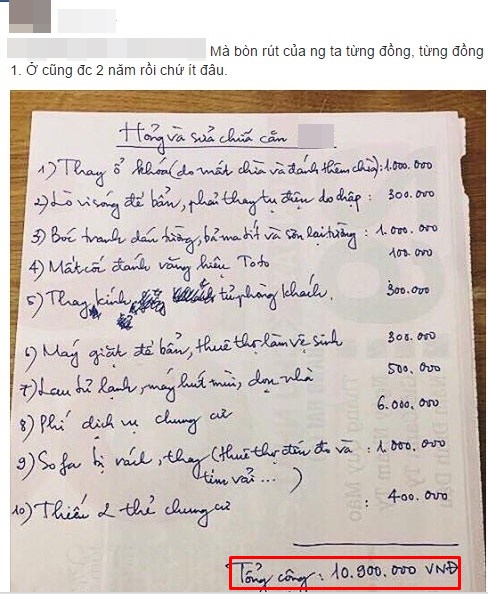 Mà bòn rút của ng ta từng đồng, từng đồng
1. Ở cũng đc 2 năm rồi chứ ít đâu.
Hỏng và sửa chữa căn
1) Thay ổ khóa (do mất chìa và đánh thêm chìa): 1.000.000
2) Lò vi sóng để bẩn, phải thay tụ điện do chập : 300.000
3) Bóc tranh dán tường, bả ma tít và sơn lại tường : 1.000.000
4) Mất cối đánh răng hiệu Toto 100.000
5) Thay kính tủ phòng khách. 300.000
6) Máy giặt để bẩn, thuê thợ làm vệ sinh 300.000
7) Lau tủ lạnh, máy hút mùi, dọn nhà 500.000
8) Phí dịch vụ chung cư 6.000.000
9) Sofa bị rách, thay (thuê thợ đến đo và : 1.000.000
tìm vải ... )
10) Thiếu 2 thẻ chung cư : 400.000
Tổng cộng : 10.900.000 VNĐ